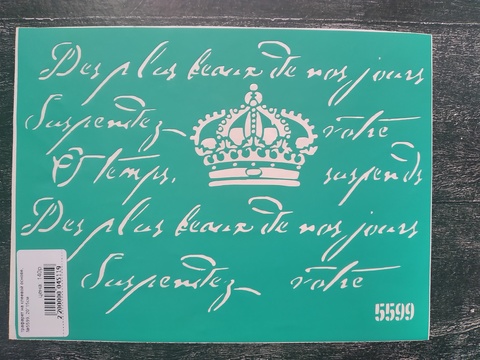 Des plus beaux de nos jours
Suspendez votre
Ô temps, suspends
Des plus beaux de nos jours
Suspendez votre
5599